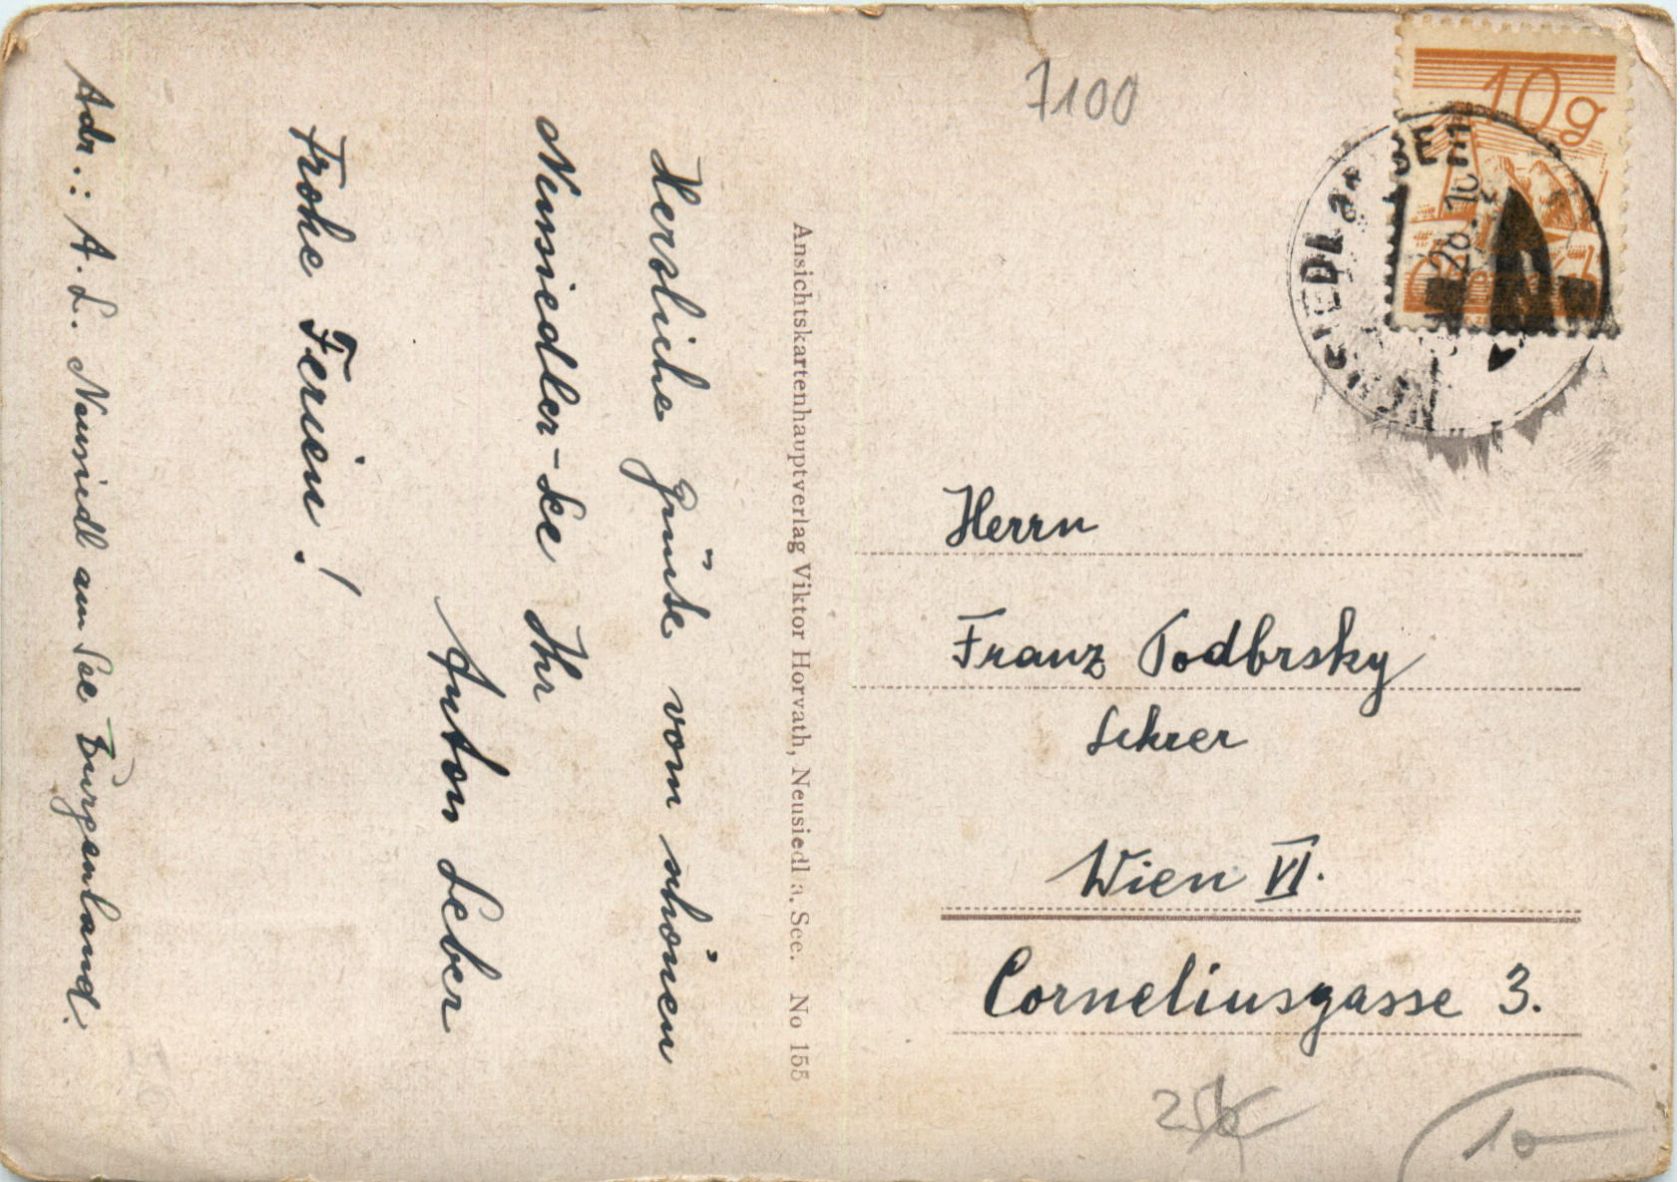 Herzliche Grüße vom schönen
Neusiedler-See Ihr
Anton Leber
Frohe Ferien!
Adr.: A. L. Neusiedl am See Burgenland.
Ansichtskartenhauptverlag Viktor Horvath, Neusiedl a. See. No 155
7100
10g
SIEDL a.
Herrn
Franz Podbrsky
Lehrer
Wien VI.
Corneliusgasse 3.
10